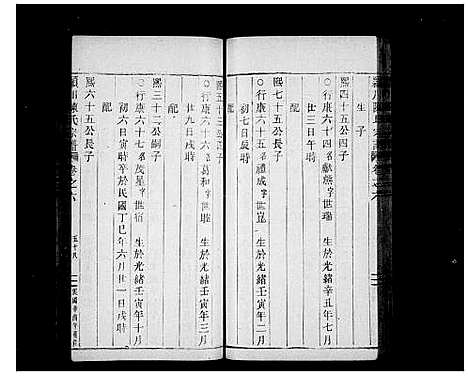 穎川陳氏宗譜 卷之六
生子
熙四十五公四子
○行康六十四名猷熊字世瑞 生於光緒辛丑年七月
廿三日午時
配
熙七十五公長子
○行康六十五名禮成字世崑 生於光緒壬寅年二月
初七日辰時
配
熙五十三公長子
○行康六十六名葛和字世聰 生於光緒壬寅年三月
廿九日戌時
配
熙三十二公嗣子
○行康六十七名茂星字世宿 生於光緒壬寅年十月
初六日寅時卒於民國丁巳年六月廿一日戌時
配
熙六十五公長子
穎川陳氏宗譜 卷之六 五十八